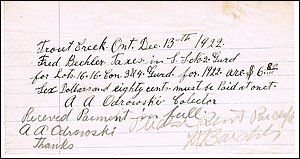 Trout Creek. Ont. Dec. 13th 1922.
Fred Bechler Taxes in S. S. No 2. Gurd
for Lots. 16-16. Con. 3&4. Gurd. for 1922. are $6.80
Six Dollars and eighty cents. must be Paid at once.
A A Odrowski Colector
Recieved Payment in full.
A A Odrowski
Thanks